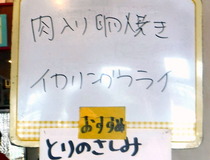 肉入り卵焼き
イカリングフライ
おすすめ
とりのさしみ